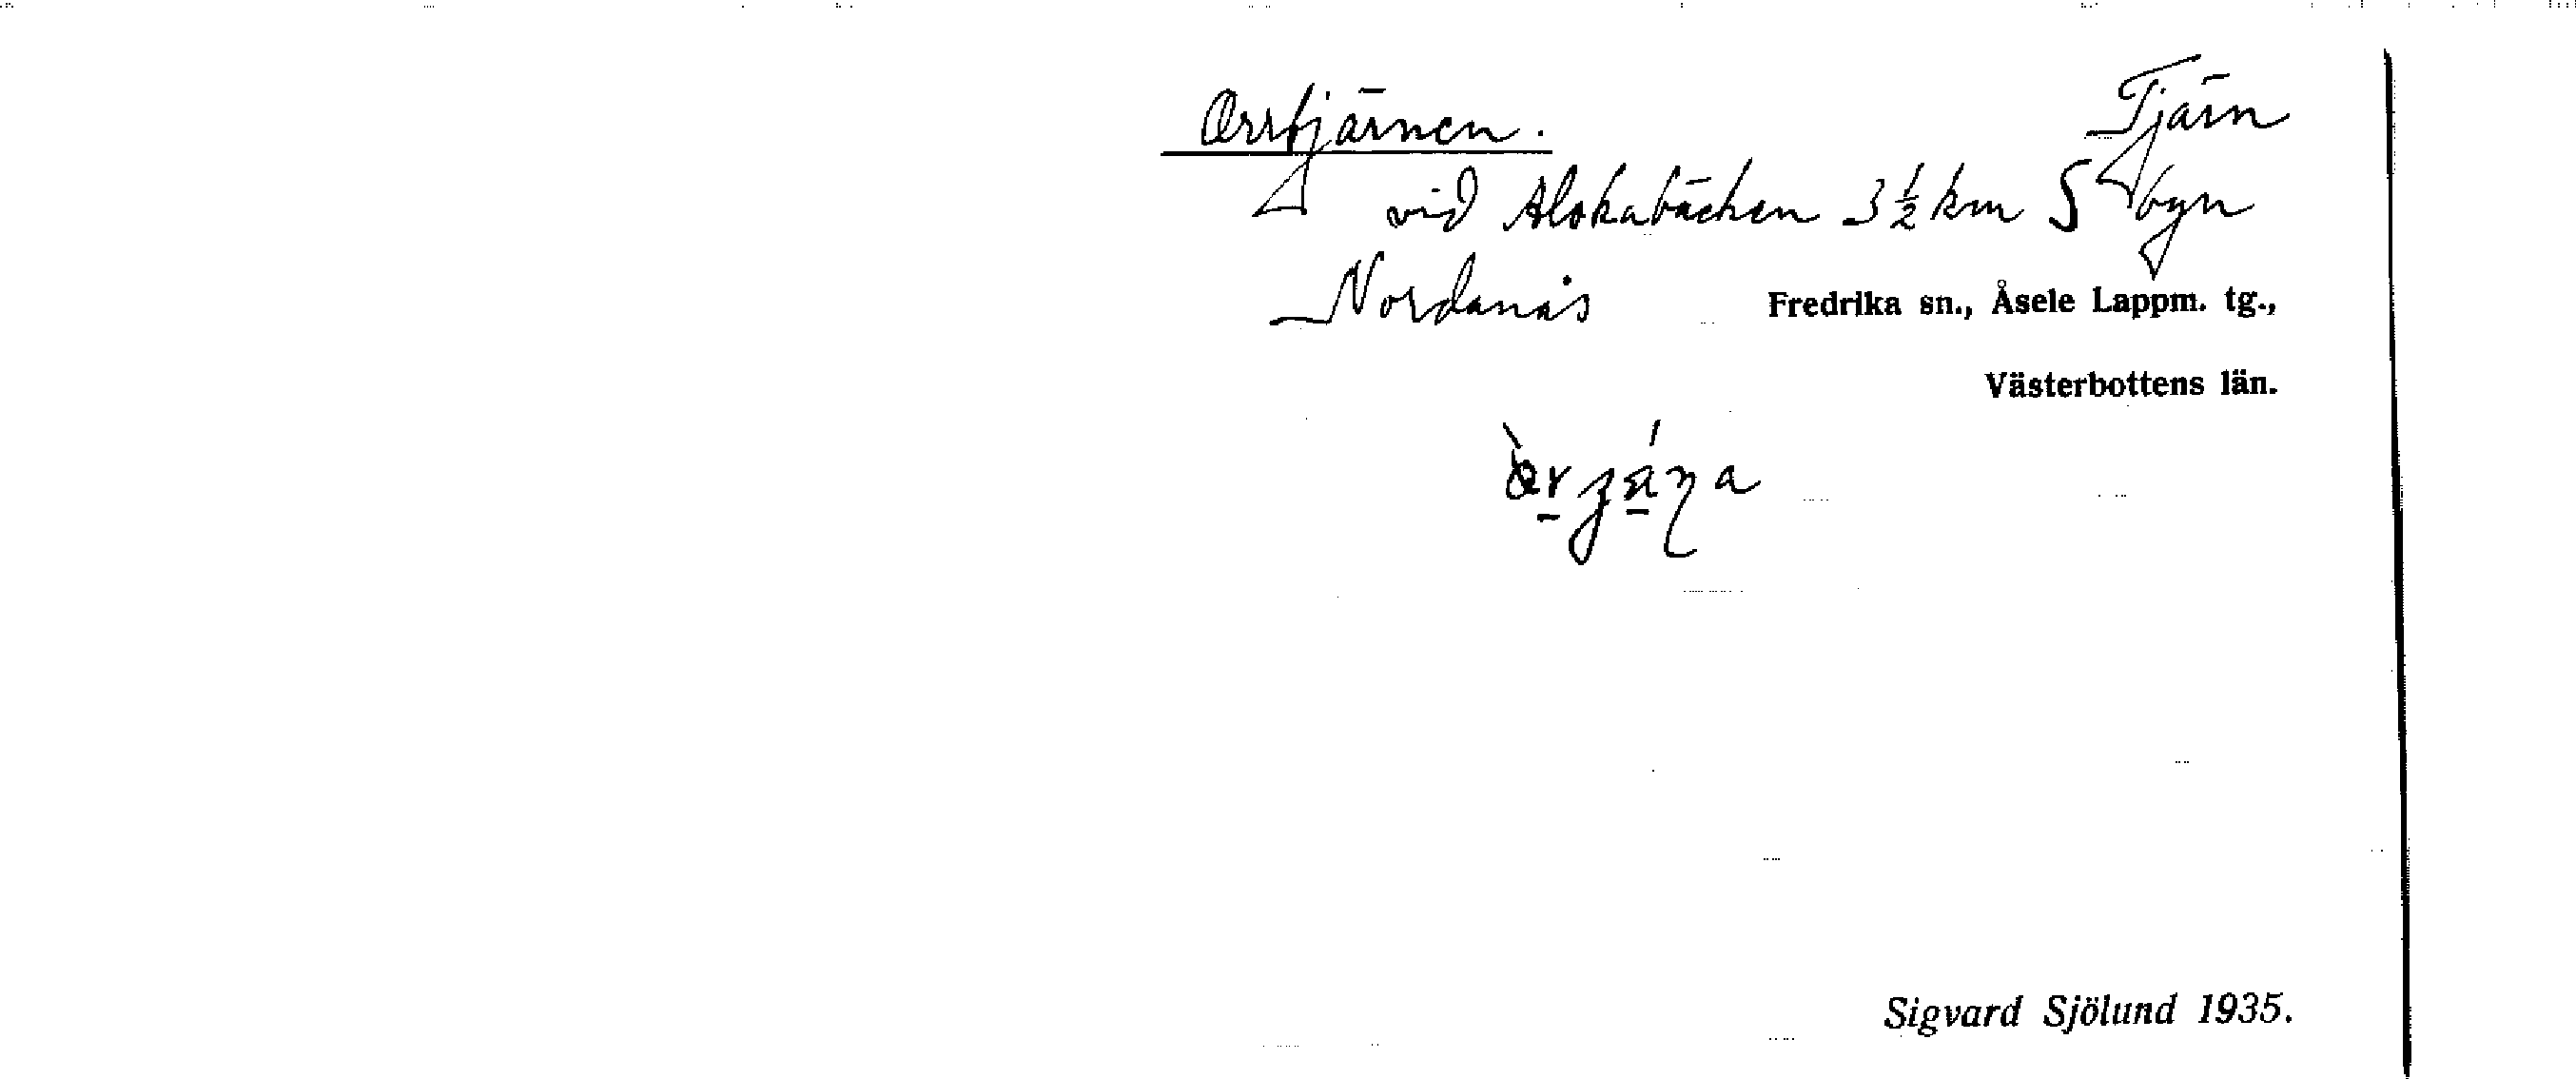 Orrtjärnen. Tjärn
vid Alskabäcken 3 ½ km S byn
Nordanås Fredrika sn., Åsele Lappm. tg.,
Västerbottens län.
Sigvard Sjölund 1935.